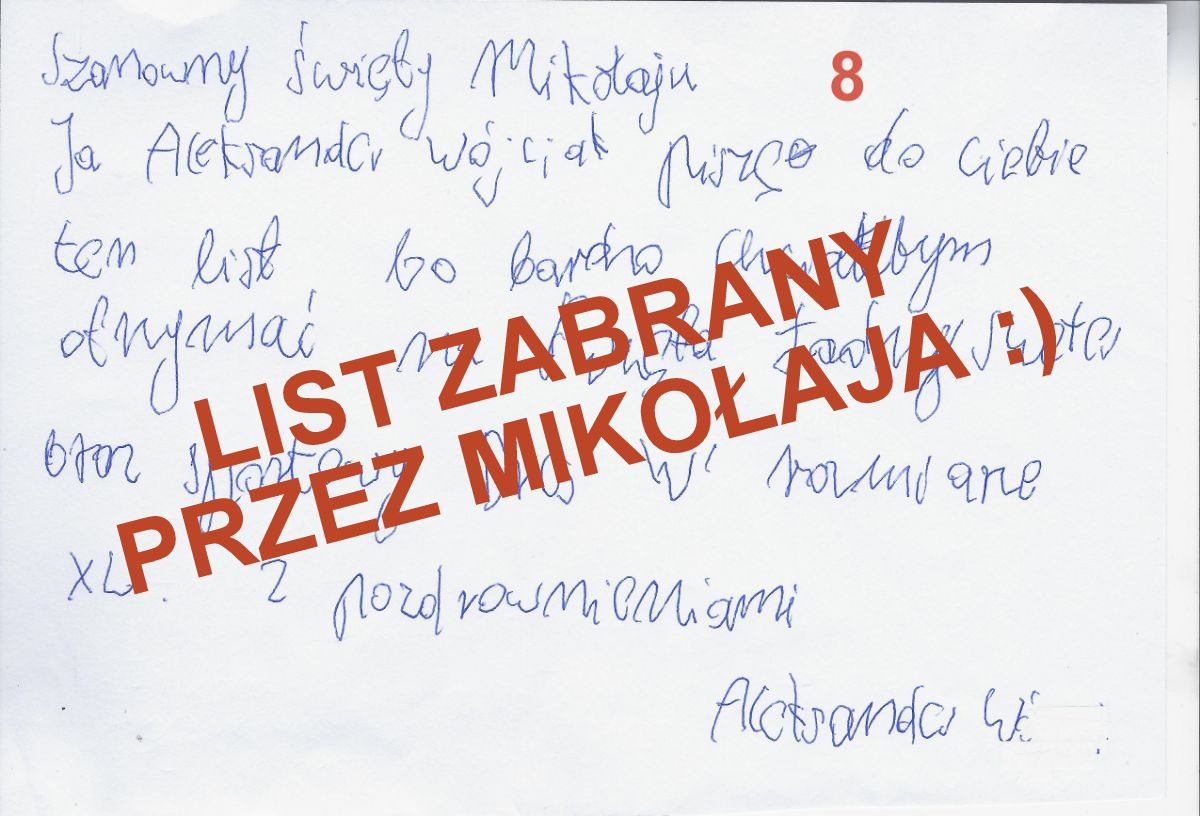 Szanowny święty Mikołaju
8
Ja Aleksandra Wójciak piszę do ciebie
ten list bo bardzo chciałbym
otrzymać na święta ładny sweter
oraz sportowy w rozmiarze
XL. Z pozdrownieniami
Aleksandra W
LIST ZABRANY
PRZEZ MIKOŁAJA :)